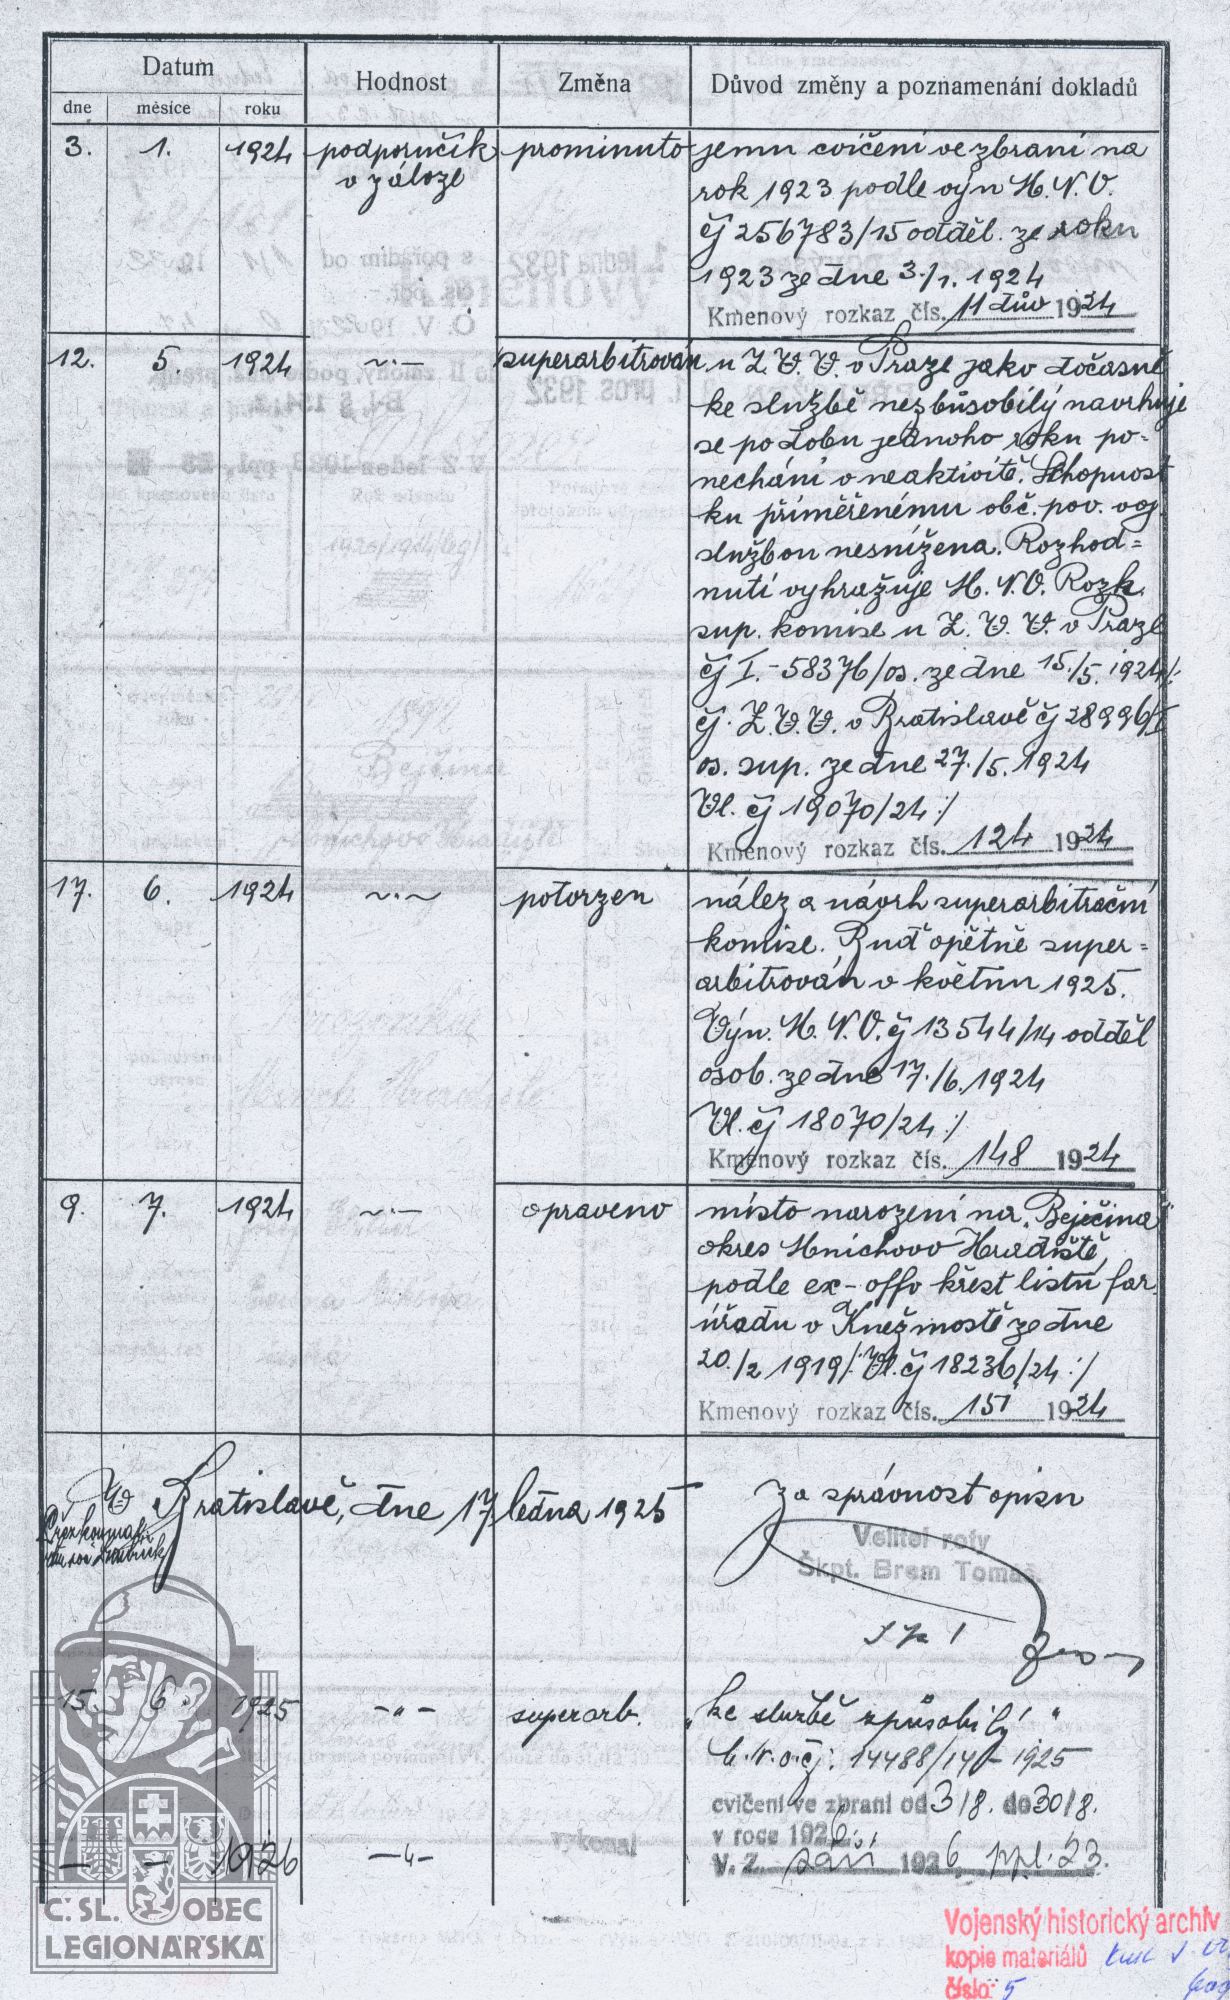 Datum
Hodnost
Změna
Důvod změny a poznamenání dokladů
dne
měsíce
roku
3. 1. 1924 podporučík prominuto jemu cvičení ve zbraní na
v záloze
rok 1923 podle výn M.N.O.
čj 256783/15 odděl. ze roku
1923 ze dne 3./1. 1924
Kmenový rozkaz čís. 11 dův 1924
12. 5. 1924 ~·— superarbitrován u Z.V.V. v Praze jako dočasně
ke službě nezbůsobilý navrhuje
se po dobu jednoho roku po=
nechání v neaktivitě. Schopnost
ku přiměřenému obč. pov. voj.
službou nesnížena. Rozhod=
nutí vyhražuje M.N.O. Rozh.
sup. komise u Z.V.V. v Praze
čj I.-58376/os. ze dne 15./5. 1924/:
čj. Z.V.V. v Bratislavě čj 28996/I
os. sup. ze dne 27./5. 1924
Vl. čj 19070/24 :/
Kmenový rozkaz čís. 124 1924
17. 6. 1924 ~·~ potvrzen nález a návrh superarbitrační
komise. Buď opětně super=
arbitrován v květnu 1925.
Výn. M.N.O. čj 13544/14 odděl
osob. ze dne 17./6. 1924
Vl. čj 18070/24 :/
Kmenový rozkaz čís. 148 1924
9. 7. 1924 ~·— opraveno místo narození na „Bejčina"
okres Mnichovo Hradiště
podle ex-offo křest listu far.
úřadu v Kněžmostě ze dne
20./2 1919/: Vl. čj 18236/24 :/
Kmenový rozkaz čís. 151 1924
V Bratislavě, dne 17 ledna 1925
Za správnost opisu
Velitel roty
Škpt. Brem Tomáš.
15. 6. 1925 —"— superarb. „ke službě způsobilý"
čj: 14488/14 - 1925
cvičení ve zbrani od 3/8. do 30/8.
v roce 1926.
— — 1926 —"— vykonal
V. Z. září 1926, ppl. 23.
Č. SL. OBEC
LEGIONÁŘSKÁ
Vojenský historický archiv
kopie materiálů
číslo: 5